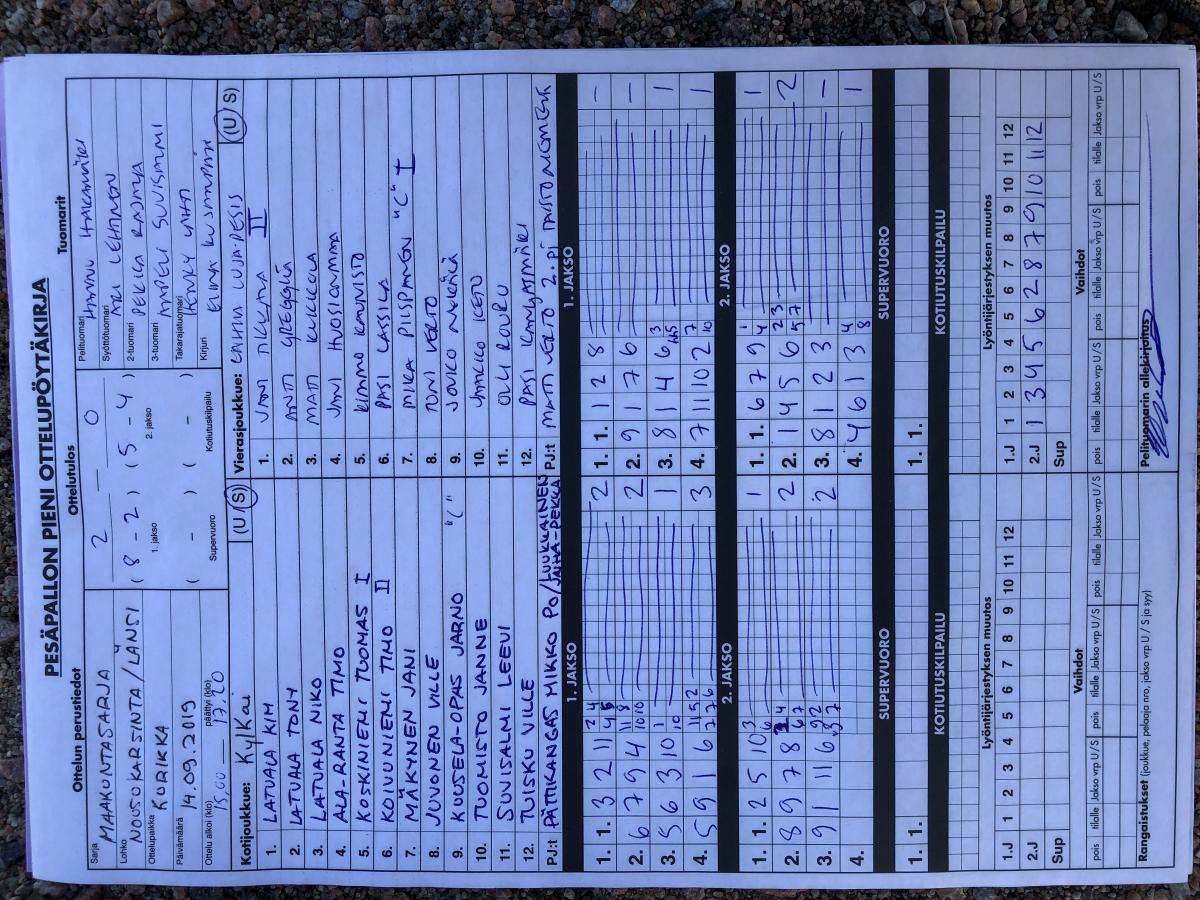 PESÄPALLON PIENI OTTELUPÖYTÄKIRJA
Ottelun perustiedot
Sarja MAAKUNTASARJA
Lohko NOUSUKARSINTA/LÄNSI
Ottelupaikka KURIKKA
Päivämäärä 14.09.2019
Ottelu alkoi (klo) 15,00 päättyi (klo) 17,20
Ottelutulos
2 – 0
( 8 - 2 ) ( 5 - 4 )
1. jakso 2. jakso
( - ) ( - )
Supervuoro Kotiutuskilpailu
Tuomarit
Pelituomari HANNU HAKAMÄKI
Syöttötuomari ARI LEHTINEN
2-tuomari PEKKA RAJALA
3-tuomari AMPELI SUVISALMI
Takarajatuomari HENRY LAHTI
Kirjuri ELINA
Kotijoukkue: KylKai (U/S)
1. LATVALA KIM
2. LATVALA TONY
3. LATVALA NIKO
4. ALA-RANTA TIMO
5. KOSKINIEMI TUOMAS I
6. KOIVUNIEMI TIMO II
7. MÄKYNEN JANI
8. JUVONEN VILLE
9. KUUSELA-OPAS JARNO "C"
10. TUOMISTO JANNE
11. SUVISALMI LEEVI
12. TUISKU VILLE
PJ:t PÄTTIKANGAS MIKKO PO/LUUKKAINEN JUHA-PEKKA
Vierasjoukkue: LAIHIA LUJA-PESIS (U/S)
1. JANI II
2. ANTI
3. MATI KUKKOLA
4. JANI HUOSIANMAA
5. KIMMO KAUNISTO
6. PASI LASSILA
7. MIKA PIISPANEN "C" I
8. TONI VELTO
9. JOUKO
10. JAAKKO KETO
11. OLLI ROUKU
12. PASI KANGASMÄKI
PJ:t MATTI VELTO 2. PJ
1. JAKSO
1. 1. 3 2 11 2
2. 6 7 9 4 2
3. 5 6 3 10 1
4. 5 9 1 6 3
2. JAKSO
1. 1. 2 5 10 1
2. 8 9 7 8 2
3. 9 1 11 6 2
4.
SUPERVUORO
1. 1.
KOTIUTUSKILPAILU
1. JAKSO
1. 1. 1 2 8 –
2. 9 1 7 6 –
3. 8 1 4 6 1
4. 7 11 10 2 1
2. JAKSO
1. 1. 6 7 9 1
2. 1 4 5 6 2
3. 8 1 2 3 –
4. 4 6 1 3 1
SUPERVUORO
1. 1.
KOTIUTUSKILPAILU
Lyöntijärjestyksen muutos
1.J 1 2 3 4 5 6 7 8 9 10 11 12
2.J
Sup
Vaihdot
pois tilalle Jakso vrp U/S pois tilalle Jakso vrp U/S pois tilalle Jakso vrp U/S
Rangaistukset (joukkue, pelaaja nro, jakso vrp U / S ja syy)
Lyöntijärjestyksen muutos
1.J 1 2 3 4 5 6 7 8 9 10 11 12
2.J 1 3 4 5 6 2 8 7 9 10 11 12
Sup
Vaihdot
pois tilalle Jakso vrp U/S pois tilalle Jakso vrp U/S pois tilalle Jakso vrp U/S
Pelituomarin allekirjoitus